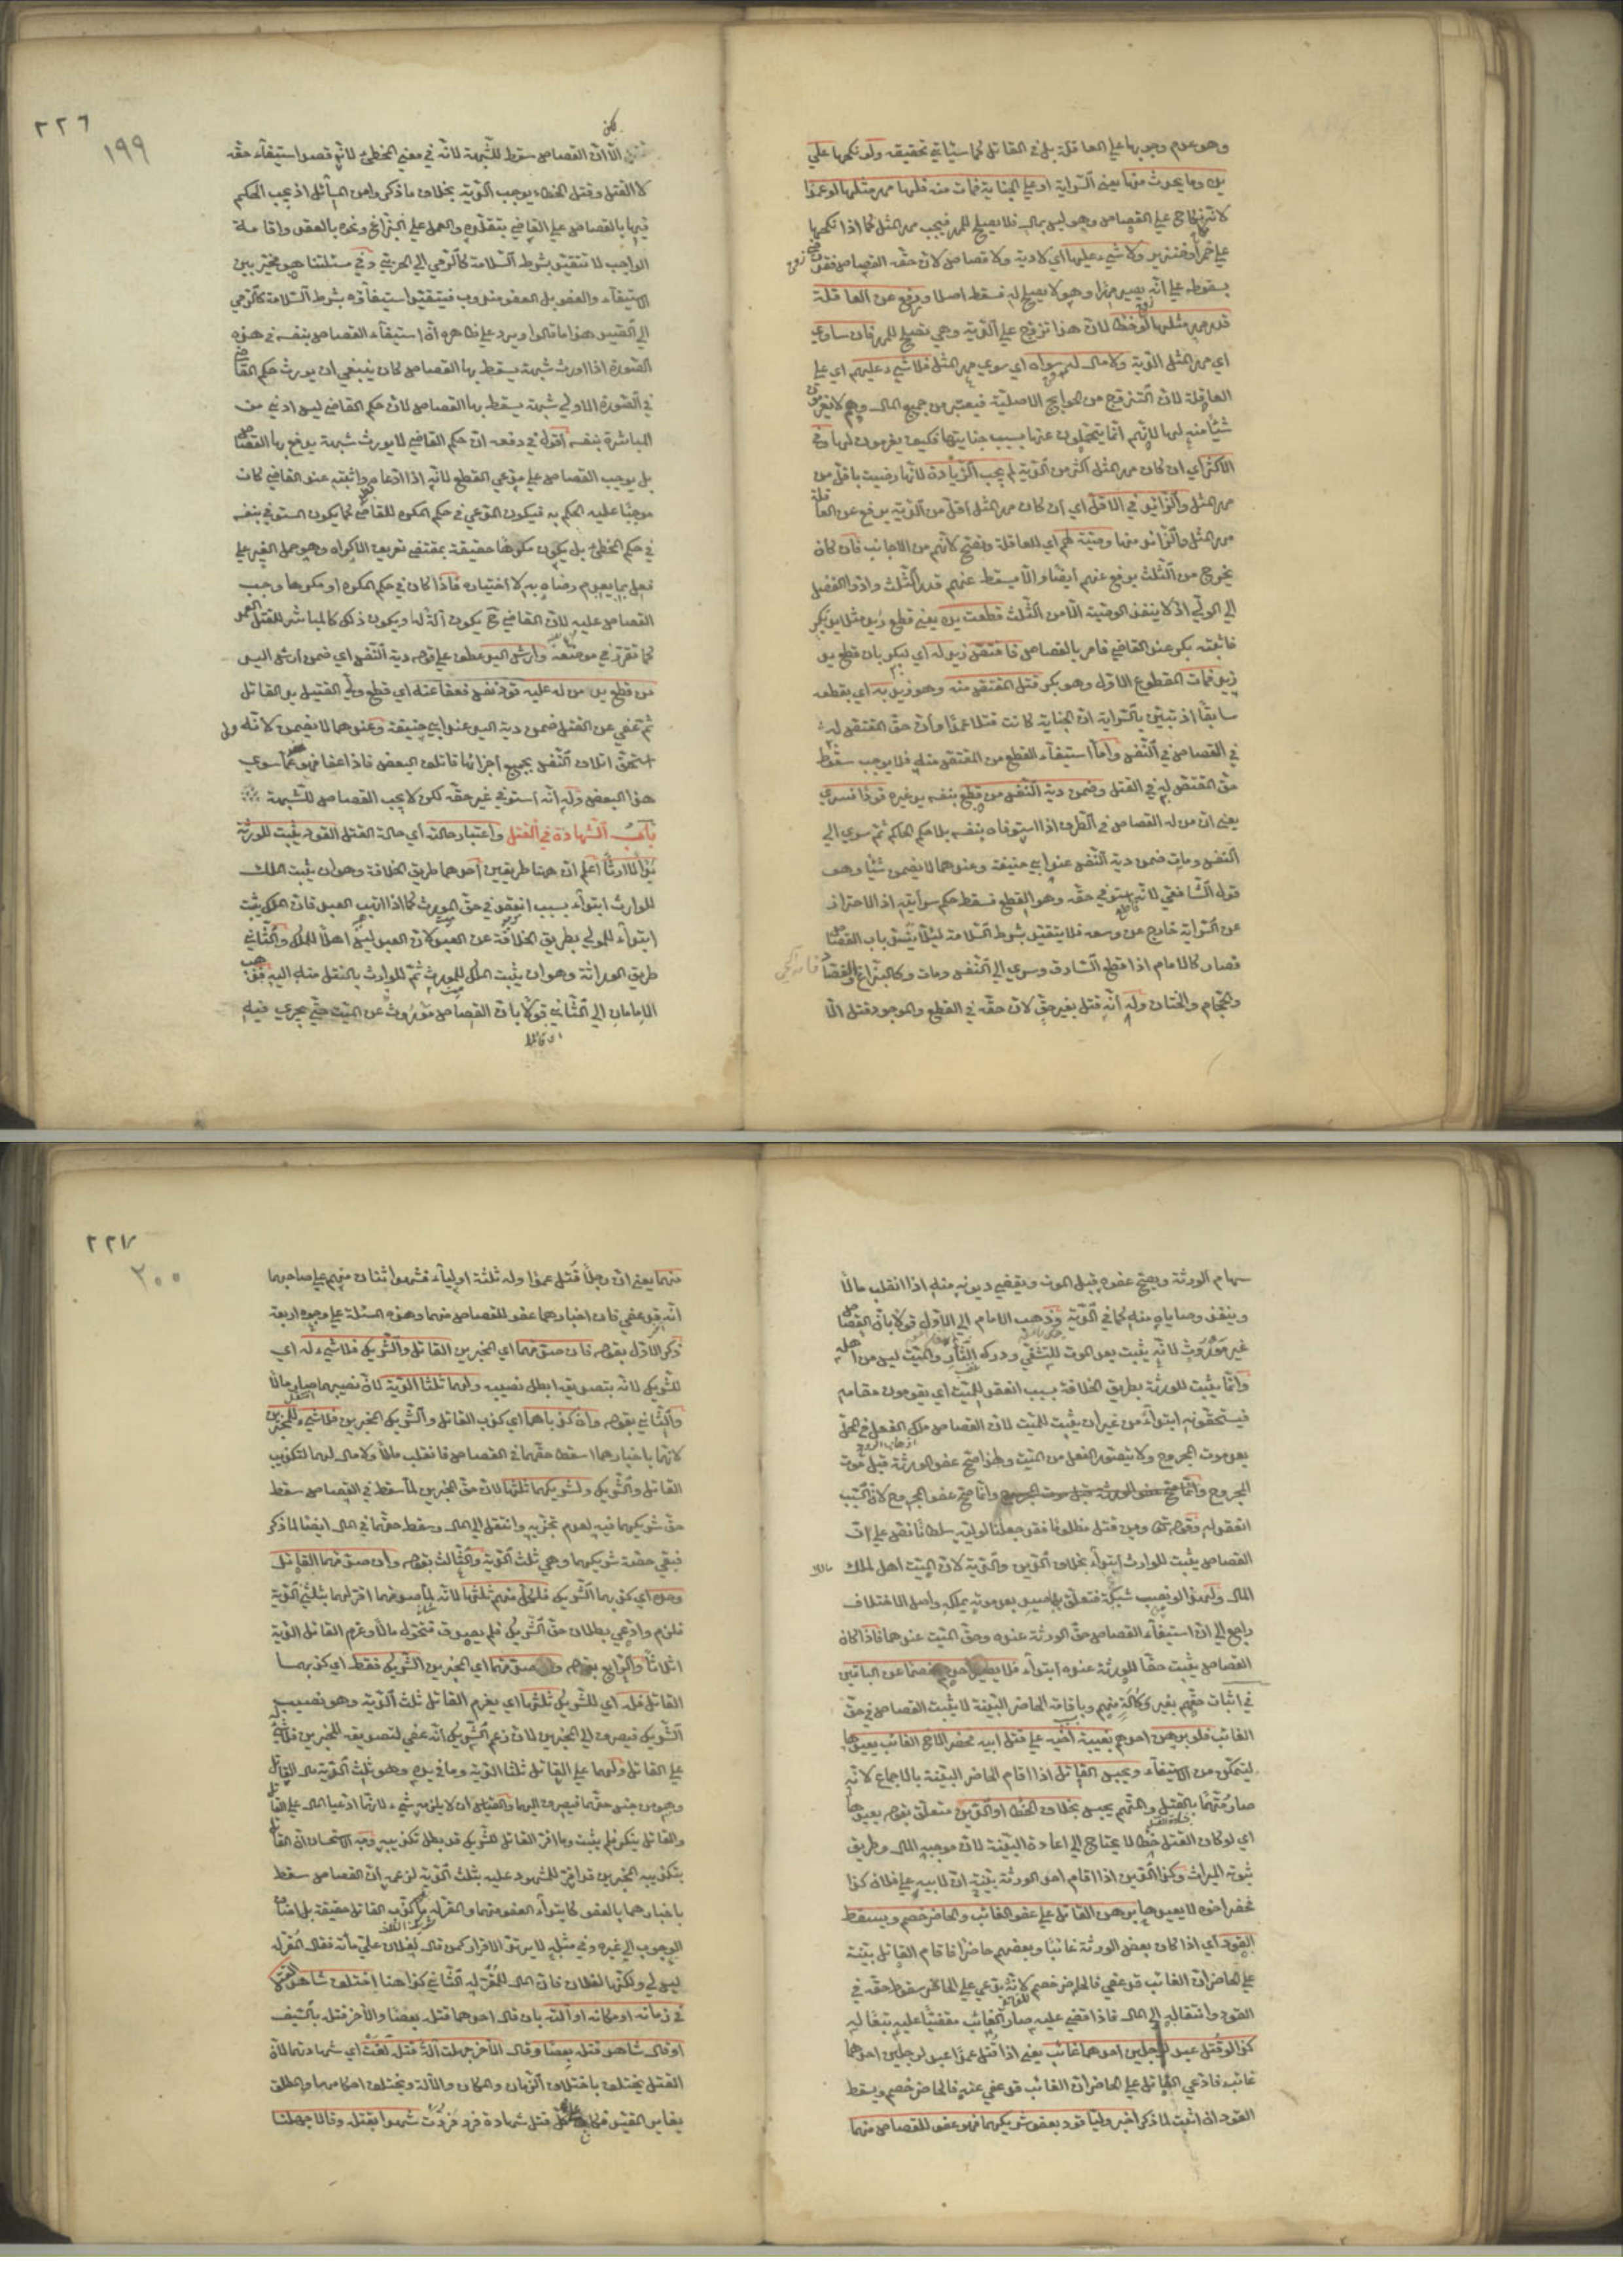 وهو عدم وجوبها على العاقلة بل في القاتل كما سيأتي تحقيقه ولو نكحها على
يده وما يحدث منها يعني السراية او على الجناية فمات منه فلها مهر مثلها لو عمدا
لانه نكاح على القصاص وهو ليس بمال فلا يصلح للمهر فيجب مهر المثل كما اذا نكحها
على خمر او خنزير ولا شيء عليها اي لا دية ولا قصاص لان حقه القصاص فقد رضي
بسقوطه على انه يصير مهرا وهو لا يصلح له فسقط اصلا ورفع عن العاقلة
قدر مهر مثلها لو خطأ لان هذا تزوج على الدية وهي تصلح للمهر فان ساوي
اي مهر المثل الدية ولا مال له سواه اي سوى مهر المثل فلا شيء عليهم اي على
العاقلة لان التزوج من الحوايج الاصلية فيعتبر من جميع المال وهم لا يغرمون
شيئا منه لها لانهم انما يتحملون عنها بسبب جنايتها فكيف يغرمون لها وفي
الاكثر اي ان كان مهر المثل اكثر من الدية لم يجب الزيادة لانها رضيت باقل من
مهر المثل والزائد في الاقل اي ان كان مهر المثل اقل من الدية يرفع عن العاقلة
مهر المثل والزائد منها وصية لهم اي للعاقلة وتصح لانهم من الاجانب فان كان
يخرج من الثلث يرفع عنهم ايضا والا يسقط عنهم قدر الثلث وادوا الفضل
الى الولي اذ لا ينفذ الوصية الا من الثلث قطعت يده يعني قطع زيد مثلا يد بكر
فاثبته بكر عند القاضي فامر بالقصاص فاقتص زيد له اي لبكر بان قطع يد
زيد فمات المقطوع الاول وهو بكر قتل المقتص منه وهو زيد به اي بقطعه
سابقا اذ تبين بالسراية ان الجناية كانت قتلا عمدا وان حق المقتص له
في القصاص في النفس واما استيفاء القطع من المقتص منه فلا يوجب سقوط
حق المقتص له في القتل وضمن دية النفس من قطع بنفسه يد غيره قودا فسري
يعني ان من له القصاص في الطرف اذا استوفاه بنفسه بلا حكم الحاكم ثم سري الى
النفس ومات ضمن دية النفس عند ابي حنيفة وعندهما لا يضمن شيئا وهو
قول الشافعي لانه استوفي حقه وهو القطع فسقط حكم سرايته اذ الاحتراز
عن السراية خارج عن وسعه فلا يتقيد بشرط السلامة لئلا ينسد باب القصاص
فصار كالامام اذا قطع السارق وسري الى النفس ومات وكالبزاغ والفصاد
والحجام والختان وله انه قتل بغير حق لان حقه في القطع والموجود قتل الا
٢٢٦
١٩٩
لكن
الا ان القصاص سقط للشبهة لانه في معنى الخطئ لانه قصد استيفاء حقه
لا القتل وقتل الخطاء يوجب الدية بخلاف ما ذكر وامن المسائل اذ يجب الحكم
فيها بالقصاص على القاضي بتقلده والعمل على البزاغ ونحوه بالعقد واقامة
الواجب لا تتقيد بشرط السلامة كالرمي الى الحربي وفي مسئلتنا هو مخير بين
الاستيفاء والعفو بل العفو مندوب فيتقيد استيفاؤه بشرط السلامة كالرمي
الى الصيد هذا ما قالوا ويرد على ظاهره ان استيفاء القصاص بنفسه في هذه
الصورة اذا اورث شبهة يسقط بها القصاص كان ينبغي ان يورث حكم القاضي
في الصورة الاولى شبهة يسقط بها القصاص لان حكم القاضي ليس ادنى من
المباشرة بنفسه اقول في دفعه ان حكم القاضي لا يورث شبهة يدفع بها القصاص
بل يوجب القصاص على مدعي القطع لانه اذا ادعاه واثبته عند القاضي كان
موجبا عليه الحكم به فيكون المدعي في حكم المكره للقاضي كما يكون المستوفي بنفسه
في حكم الخطئ بل يكون مكرها حقيقة بمقتضى تعريف الاكراه وهو حمل الغير على
فعل بما يعدم رضاه به لا اختياره فاذا كان في حكم المكره او مكرها وجب
القصاص عليه لان القاضي ح يكون آلة له ويكون ذلك كالمباشر للقتل العمد
كما تقرر في موضعه وارش اليد عطف على قوله دية النفس اي ضمن ارش اليد
من قطع يد من له عليه قود نفس فعفا عنه اي قطع ولي القتيل يد القاتل
ثم عفي عن القتل ضمن دية اليد عند ابي حنيفة وعندهما لا يضمن لانه ولي
استحق اتلاف النفس بجميع اجزائها فاتلف البعض فاذا عفا فهو عما سوى
هذا البعض وله انه استوفي غير حقه لكن لا يجب القصاص للشبهة
باب الشهادة في القتل واعتبار حالته اي حالة القتل القود يثبت للورثة
بدأ لا ارثا اعلم ان هنا طريقين احدهما طريق الخلافة وهو ان يثبت الملك
للوارث ابتداء بسبب انعقد في حق المورث كما اذا اتهب العبد فان الملك يثبت
ابتداء للمولي بطريق الخلافة عن العبد لان العبد ليس اهلا للملك والثاني
طريق الوراثة وهو ان يثبت الملك للمورث ثم للوارث بالنقل منه اليه فذهب
الامامان الى الثاني قولا بان القصاص موروث عن الميت حتى يجري فيه
اي قالا
سهام الورثة ويصح عفوه قبل الموت ويقضي ديونه منه اذا انقلب مالا
وينفذ وصاياه منه كما في الدية وذهب الامام الى الاول قولا بان القصاص
غير موروث لانه يثبت بعد الموت للتشفي ودرك الثأر والميت ليس من اهله
وانما يثبت للورثة بطريق الخلافة بسبب انعقد للميت اي يقومون مقامه
فيستحقونه ابتداء من غير ان يثبت للميت لان القصاص ملك الفعل في المحل
بعد موت المجروح ولا يتصور الفعل من الميت ولهذا صح عفو الورثة قبل موت
المجروح وانما صح عفو المجروح لان السبب
انعقد له وقوله تعالى ومن قتل مظلوما فقد جعلنا لوليه سلطانا نص على ان
القصاص يثبت للوارث ابتداء بخلاف الدين والدية لان الميت اهل لملك
المال ولهذا لو نصب شبكة فتعلق بها صيد بعد موته يملكه واصل الاختلاف
راجع الى ان استيفاء القصاص حق الورثة عنده وحق الميت عندهما فاذا كان
القصاص يثبت حقا للورثة عنده ابتداء فلا يصير احدهم خصما عن الباقين
في اثبات حقهم بغير وكالة منهم وباقامة الحاضر البينة لا يثبت القصاص في حق
الغائب فلو برهن احدهم بغيبة اخيه على قتل ابيه فحضر الاخ الغائب يعيدها
ليتمكن من الاستيفاء ويحبس القاتل اذا اقام الحاضر البينة بالاجماع لانه
صار متهما بالقتل والمتهم يحبس بخلاف الخطأ او الدين متعلق بقوله يعيدها
اي لو كان القتل خطأ لا يحتاج الى اعادة البينة لان موجبه المال وطريق
ثبوته الميراث وكذا الدين اذا اقام احد الورثة بينة ان لابيه على فلان كذا
فحضر اخوه لا يعيدها برهن القاتل على عفو الغائب والحاضر خصم ويسقط
القود اي اذا كان بعض الورثة غائبا وبعضهم حاضرا فاقام القاتل بينة
على الحاضر ان الغائب قد عفي فالحاضر خصم لانه يدعي على الحاضر سقوط حقه في
القود وانتقاله الى المال فاذا قضي عليه صار الغائب مقضيا عليه تبعا له
كذا لو قتل عبد لرجلين احدهما غائب يعني اذا قتل عمدا عبد لرجلين احدهما
غائب فادعي القاتل على الحاضر ان الغائب قد عفي عنه فالحاضر خصم ويسقط
القود ان اثبت لما ذكر اخبر وليا قود بعفو شريكهما فهو عفو للقصاص منهما
٢٢٧
٢٠٠
منهما يعني ان رجلا قتل عمدا وله ثلثة اولياء فشهد اثنان منهم على صاحبهما
انه قد عفي فان اخبارهما عفو للقصاص منهما وهذه المسئلة على وجوه اربعة
ذكر الاول بقوله فان صدقهما اي المخبرين القاتل والشريك فلا شيء له اي
للشريك لانه بتصديقه ابطل نصيبه ولهما ثلثا الدية لان نصيبهما صار مالا
والثاني بقوله وان كذباهما اي كذب القاتل والشريك المخبرين فلا شيء للمخبرين
لانهما باخبارهما اسقطا حقهما في القصاص فانقلب مالا ولا مال لهما لتكذيب
القاتل والشريك ولشريكهما ثلثها لان حق المخبرين لما سقط في القصاص سقط
حق شريكهما فيه لعدم تجزيه وانتقل الى المال وسقط حقهما في المال ايضا لما ذكر
فبقي حصة شريكهما وهي ثلث الدية والثالث بقوله وان صدقهما القاتل
وحده اي كذبهما الشريك فلكل منهم ثلثها لانه لما صدقهما اقر لهما بثلثي الدية
فلزم وادعي بطلان حق الشريك فلم يصدق فتحول مالا وغرم القاتل الدية
اثلاثا والرابع بقوله وان صدقهما اي المخبرين الشريك فقط اي كذبهما
القاتل فله اي للشريك ثلثها اي يغرم القاتل ثلث الدية وهو نصيب
الشريك فيصرف الى المخبرين لان زعم الشريك انه عفي لتصديقه للمخبرين فلا شيء له
على القاتل ولهما على القاتل ثلثا الدية وما في يده وهو ثلث الدية مال القاتل
وهو من جنس حقهما فيصرف اليهما والقياس ان لا يلزمه شيء لانهما ادعيا المال على القاتل
والقاتل ينكر فلم يثبت وما اقر القاتل للشريك قد بطل تكذيبه وجه الاستحسان ان القاتل
بتكذيبه المخبرين قد اقر للمشهود عليه بثلث الدية لزعمه ان القصاص سقط
باخبارهما بالعفو كابتداء العفو منهما والمقر له ما كذب القاتل حقيقة بل اضاف
الوجوب الى غيره وفي مثله لا يرتد الاقرار كمن قال لفلان علي مائة فقال المقر له
ليس لي ولكنها لفلان فان المال للمقر له الثاني كذا هنا اختلف شاهدا القتل
في زمانه او مكانه او آلته بان قال احدهما قتل بعصا والآخر قتل بالسيف
او قال شاهد قتل بعصا وقال الآخر جهلت آلة قتل لغت اي شهادتهما لان
القتل يختلف باختلاف الزمان والمكان والآلة ويختلف احكامها والمطلق
يغاير المقيد فكان على كل قتل شهادة فرد فردت شهدا بقتله وقالا جهلنا